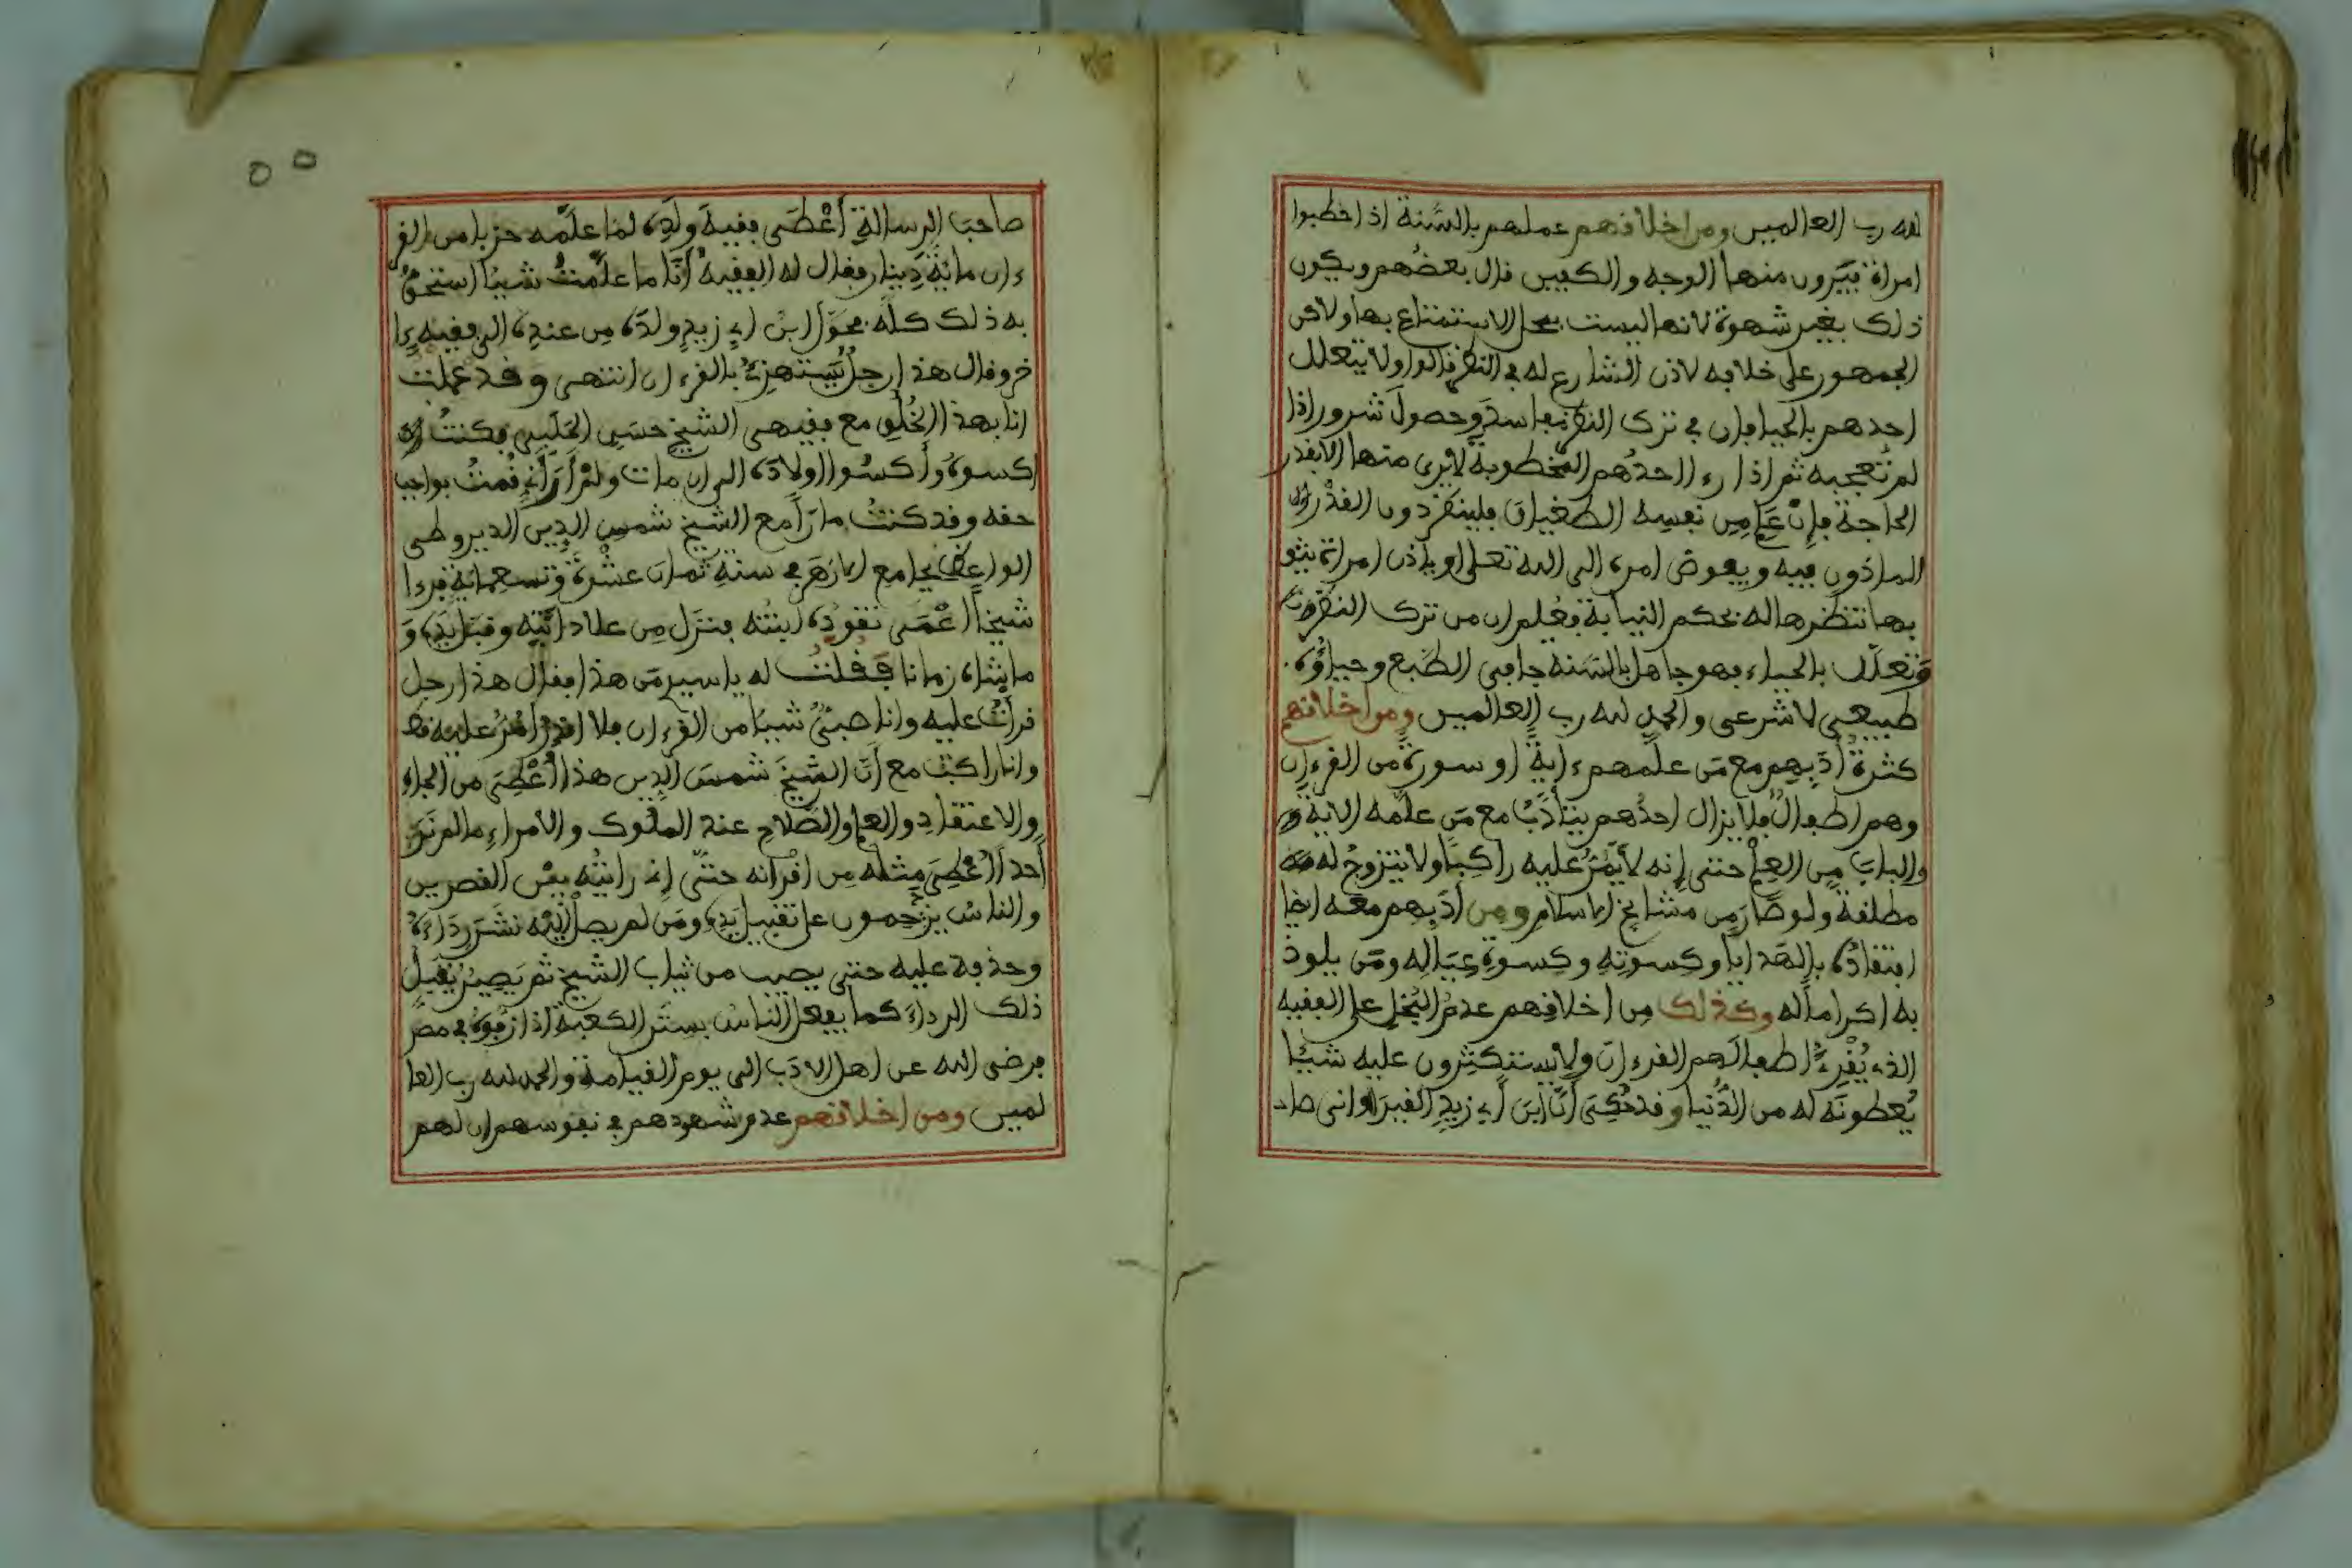 لله رب العالمين ومن اخلافهم عملهم بالسنة اذا خطبوا
امراة فيرون منها الوجه والكفين قال بعضهم ويكون
ذلك بغير شهوة لانها ليست بمحل الاستمتاع بها ولاكن
الجمهور على خلافه لاذن الشارع له في النظر قالوا ولا يتعلل
احدهم بالحياء فان في ترك النظر مفاسد وحصول شرور اذا
لم تعجبه ثم اذا رءا احدهم المخطوبة لا يرى منها الا بقدر
الحاجة فإن علم من نفسه الطغيان فلينظر دون القدر
الماذون فيه ويفوض امره الى الله تعلى او ياذن امراة يثق
بها تنظرها له بحكم النيابة فعلم ان من ترك النظر
وتعلل بالحياء فهو جاهل بالسنة جافى الطبع وحياؤه
طبيعي لا شرعى والحمد لله رب العالمين ومن اخلافهم
كثرة أدبهم مع من علمهم ءاية او سورة من القرءان
وهم اطفال فلا يزال احدهم يتأدب مع من علمه الاية
والباب من العلم حتى إنه لا يمر عليه راكبا ولا يتزوج له
مطلقة ولو صار من مشايخ الاسلام ومن أدبهم معه ايضا
افتقاده بالهدايا وكسوته وكسوة عياله ومن يلوذ
به اكراما له وكذلك من اخلافهم عدم البخل على الفقيه
الذي يقرئ اطفالهم القرءان ولا يستكثرون عليه شيئا
يعطونه له من الدنيا وقد حكى أن ابن أبي زيد القيروانى صا
صاحب الرسالة أعطى فقيه ولده لما علمه حزبا من القر
ءان مائة دينار فقال له الفقيه أنا ما علمت شيئا استحق
به ذلك كله فحول ابن ابي زيد ولده من عنده الى فقيه ءا
خر وقال هذا رجل يستهزئ بالقرءان انتهى وقد عملت
انا بهذا الخلق مع فقيهى الشيخ حسن الحلبي فكنت
اكسوه وأكسوا اولاده الى ان مات ولم أر أني قمت بواجب
حقه وقد كنت مارا مع الشيخ شمس الدين الديروطى
الواعظ بجامع الازهر في سنة ثمان عشرة وتسعمائة فرءا
شيخا أعمى تقوده ابنته فنزل من على دابته وقبل يده و
ماشاه زمانا فقلت له يا سيدى من هذا فقال هذا رجل
قرأت عليه وانا صبي شيئا من القرءان فلا اقدر أمر عليه قط
وانا راكب مع أن الشيخ شمس الدين هذا أعطى من الجاه
والاعتقاد والعلم والصلاح عند الملوك والامراء ما لم نر
أحدا أعطى مثله من اقرانه حتى إني رايته بين القصرين
والناس يزدحمون على تقبيل يده ومن لم يصل إليه نشر رداءه
وحذفه عليه حتى يصيب من ثياب الشيخ ثم يصير يقبل
ذلك الرداء كما يفعل الناس بستر الكعبة اذا زفوه في مصر
فرضى الله عن اهل الادب الى يوم القيامة والحمد لله رب العا
لمين ومن اخلافهم عدم شهودهم في نفوسهم ان لهم